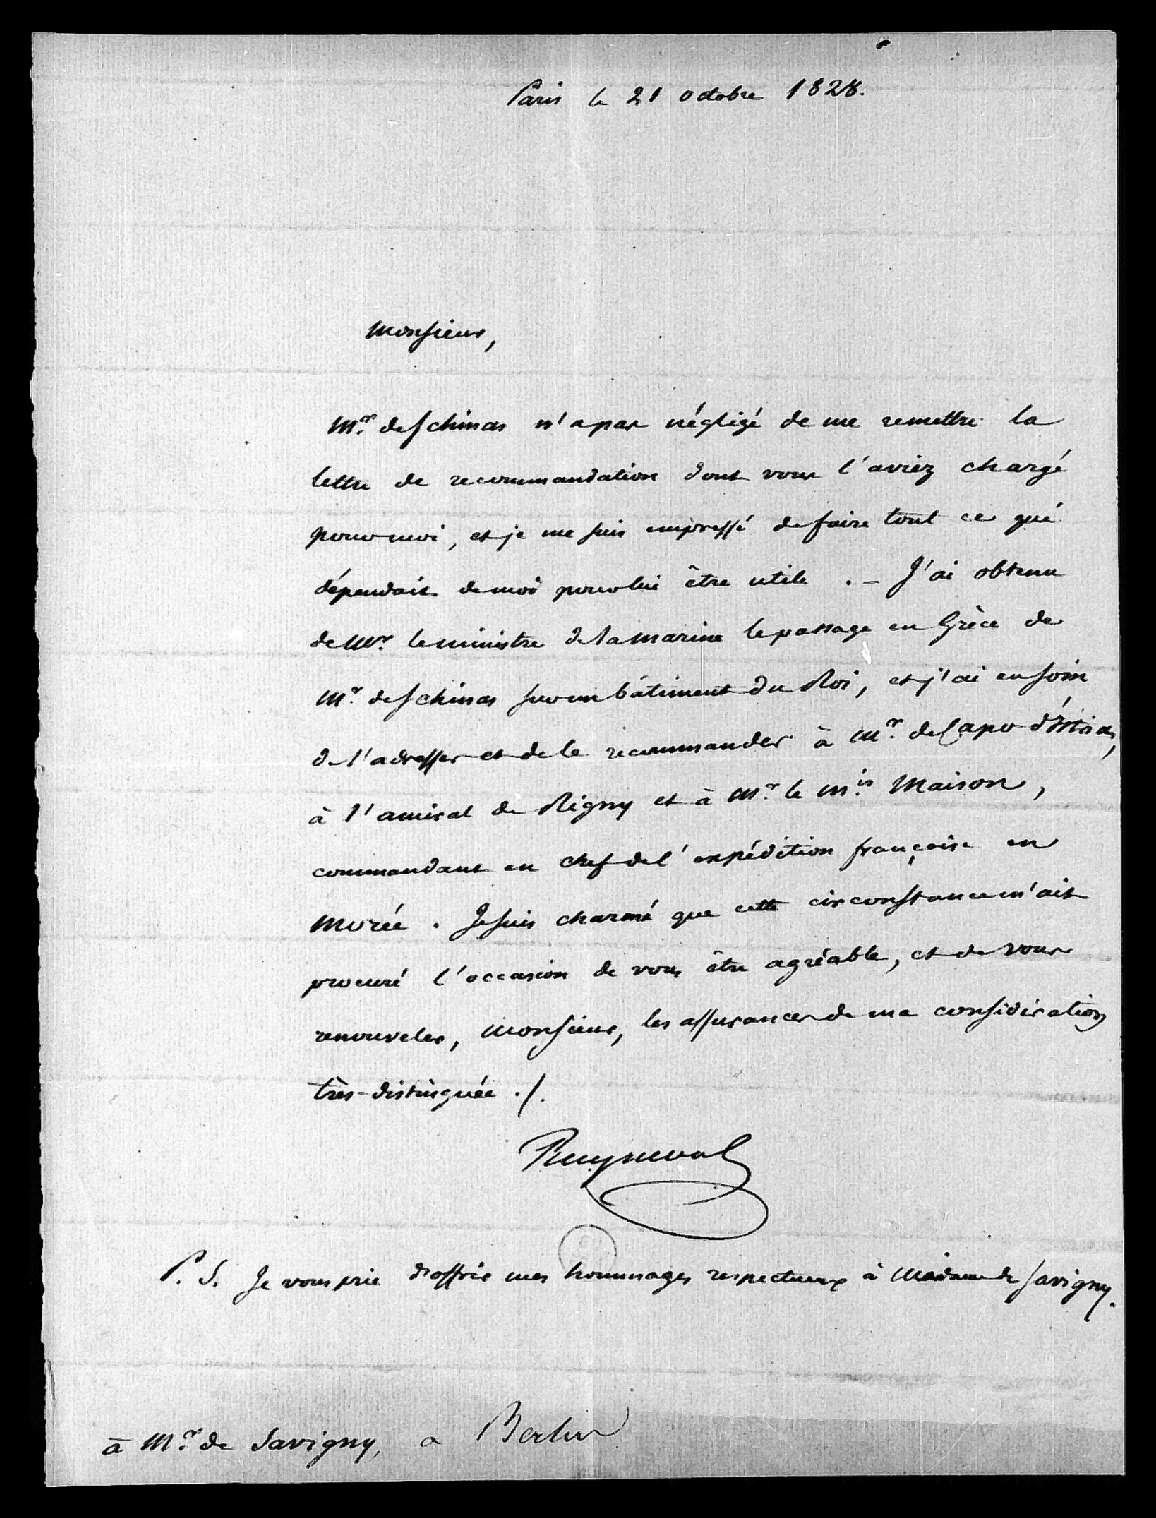 Paris le 21 octobre 1828.
Monsieur,
Mr. de Schinas n'a pas négligé de me remettre la
lettre de recommandation dont vous l'aviez chargé
pour moi, et je me suis empressé de faire tout ce qui
dépendait de moi pour lui être utile . — J'ai obtenu
de Mr. le ministre de la marine le passage en Grèce de
Mr. de Schinas sur un bâtiment du Roi, et j'ai eu soin
de l'adresser et de le recommander à Mr. de Capo d'Istrias,
à l'amiral de Rigny et à Mr. le Mis. Maison,
commandant en chef de l'expédition française en
Morée . Je suis charmé que cette circonstance m'ait
procuré l'occasion de vous être agréable, et de vous
renouveler, Monsieur, les assurances de ma considération
très-distinguée ./.
Rayneval
P. S. Je vous prie d'offrir mes hommages respectueux à Madame de Savigny.
à Mr. de Savigny, a Berlin